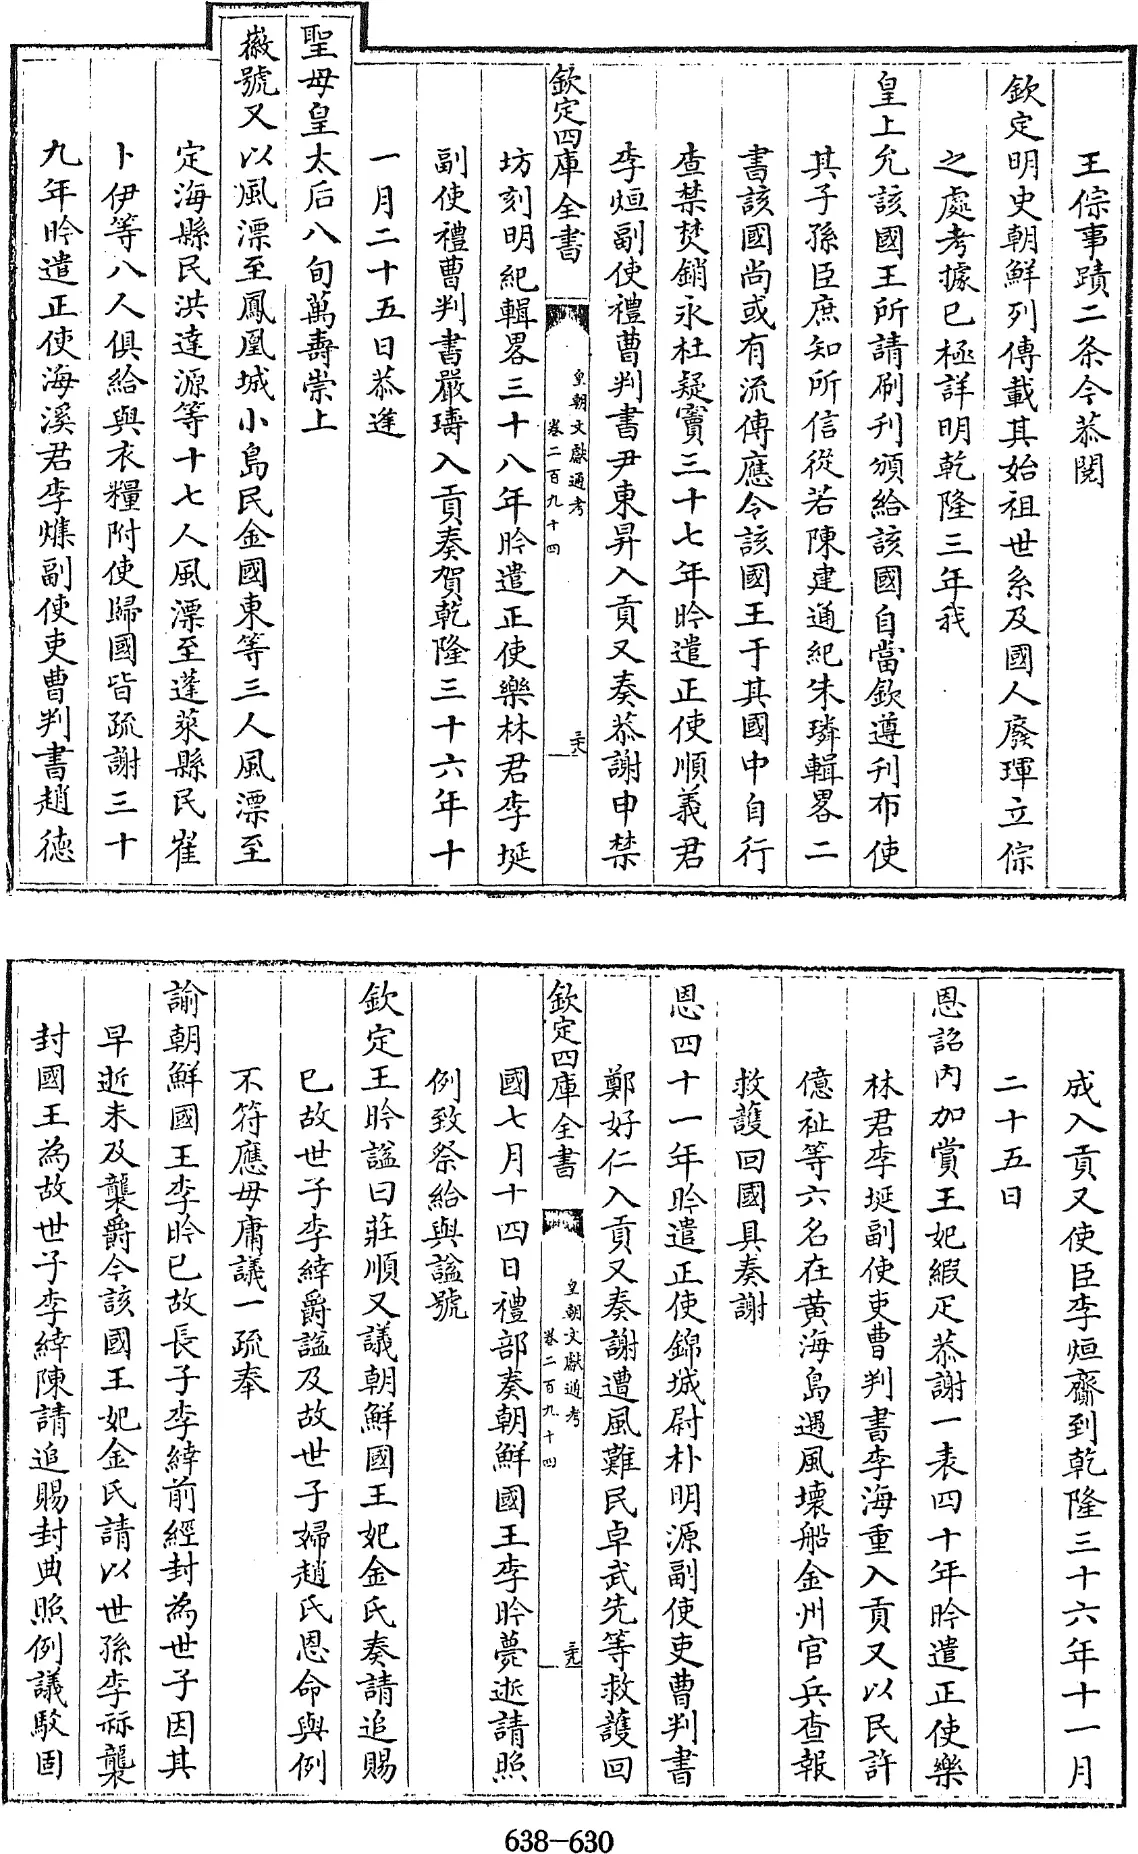 王倧事蹟二条今恭閱
欽定明史朝鮮列傳載其始祖世系及國人廢琿立倧
之處考據已極詳明乾隆三年我
皇上允該國王所請刷刊頒給該國自當欽遵刊布使
其子孫臣庶知所信從若陳建通紀朱璘輯畧二
書該國尚或有流傳應令該國王于其國中自行
查禁焚銷永杜疑竇三十七年昑遣正使順義君
李烜副使禮曹判書尹東昇入貢又奏恭謝申禁
欽定四庫全書
皇朝文獻通考
卷二百九十四
三六
坊刻明紀輯畧三十八年昑遣正使樂林君李埏
副使禮曹判書嚴璹入貢奏賀乾隆三十六年十
一月二十五日恭進
聖母皇太后八旬萬壽崇上
徽號又以風漂至鳳凰城小島民金國東等三人風漂至
定海縣民洪達源等十七人風漂至蓬萊縣民崔
卜伊等八人俱給與衣糧附使歸國皆疏謝三十
九年昑遣正使海溪君李爃副使吏曹判書趙德
成入貢又使臣李烜齎到乾隆三十六年十一月
二十五日
恩詔内加賞王妃緞疋恭謝一表四十年昑遣正使樂
林君李埏副使吏曹判書李海重入貢又以民許
億祉等六名在黃海島遇風壞船金州官兵查報
救護回國具奏謝
恩四十一年昑遣正使錦城尉朴明源副使吏曹判書
鄭好仁入貢又奏謝遭風難民卓武先等救護回
欽定四庫全書
皇朝文獻通考
卷二百九十四
三九
國七月十四日禮部奏朝鮮國王李昑薨逝請照
例致祭給與諡號
欽定王昑諡曰莊順又議朝鮮國王妃金氏奏請追賜
已故世子李緈爵諡及故世子婦趙氏恩命與例
不符應毋庸議一疏奉
諭朝鮮國王李昑已故長子李緈前經封為世子因其
早逝未及襲爵今該國王妃金氏請以世孫李祘襲
封國王為故世子李緈陳請追賜封典照例議駁固
638-630